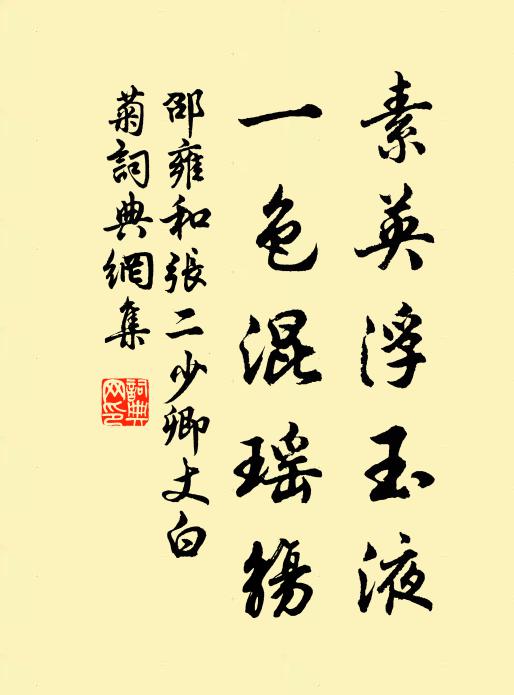 素英浮玉液
一色混瑶觴
邵雍和張二少卿丈白
菊詞典網集
詞典
网印